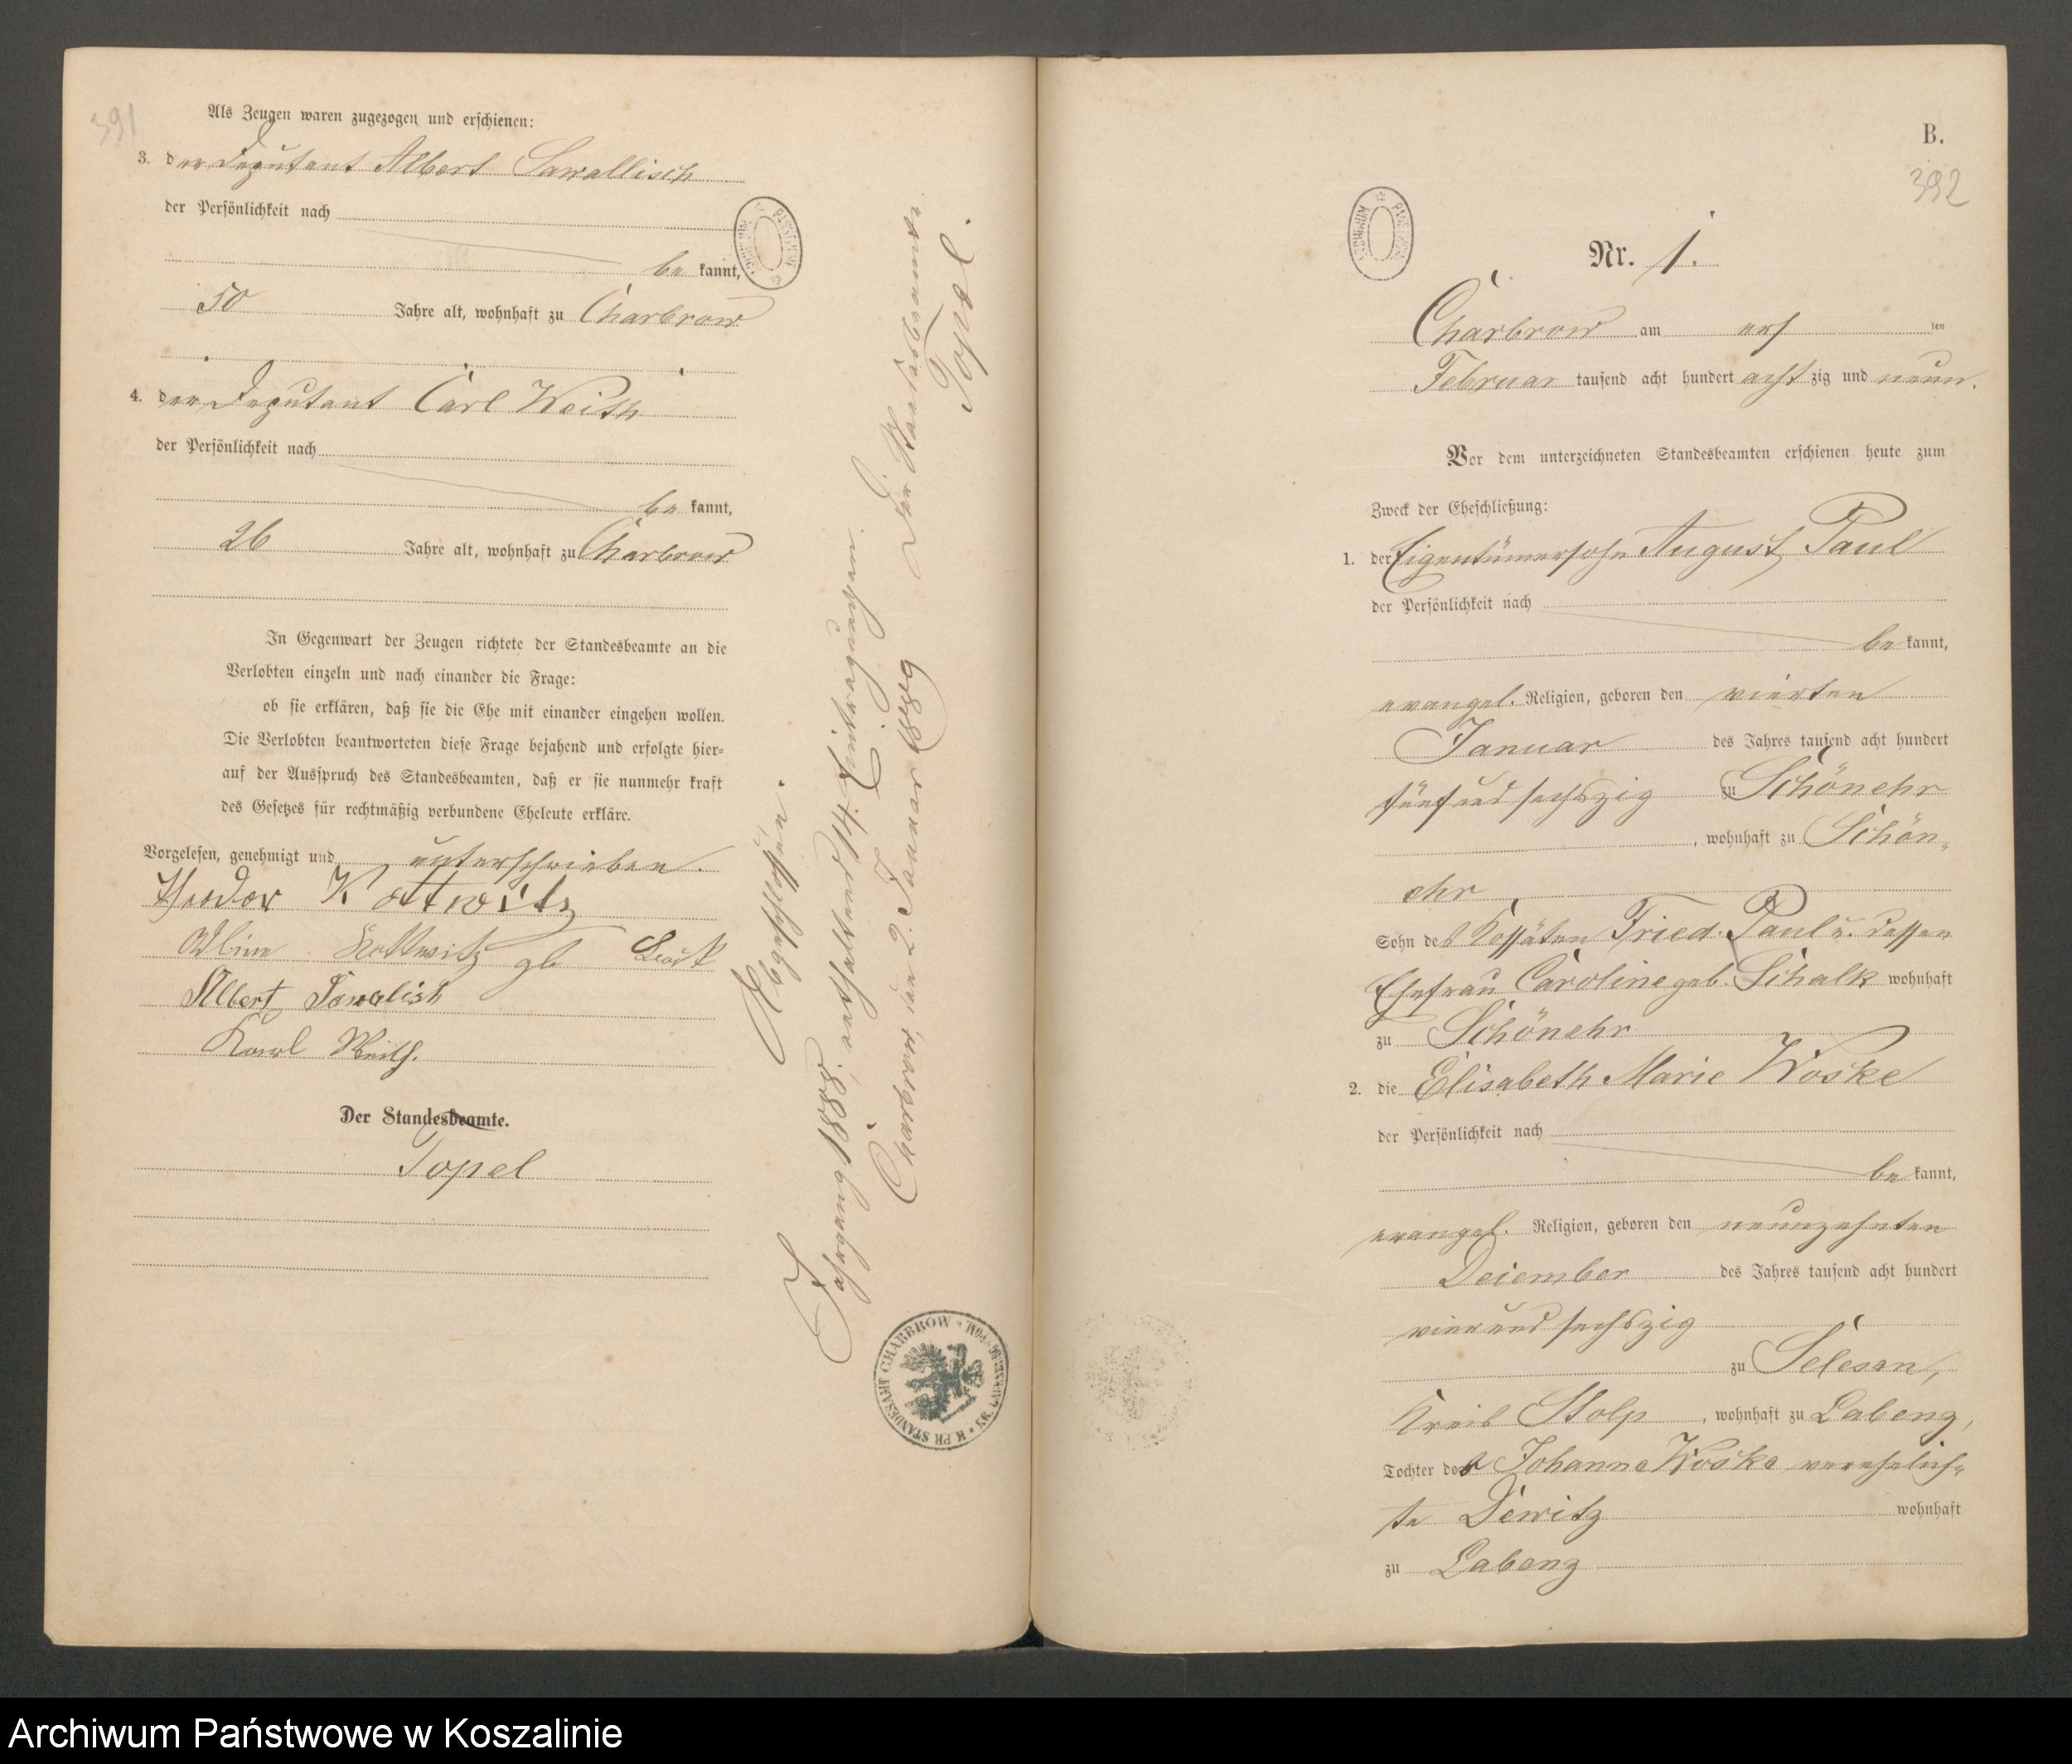 391
Als Zeugen waren zugezogen und erschienen:
3. der Deputant Albert Sawallisch
der Persönlichkeit nach
be kannt,
50 Jahre alt, wohnhaft zu Charbrow
4. der Deputant Carl Weith
der Persönlichkeit nach
be kannt,
26 Jahre alt, wohnhaft zu Charbrow
In Gegenwart der Zeugen richtete der Standesbeamte an die
Verlobten einzeln und nach einander die Frage:
ob sie erklären, daß sie die Ehe mit einander eingehen wollen.
Die Verlobten beantworteten diese Frage bejahend und erfolgte hier=
auf der Ausspruch des Standesbeamten, daß er sie nunmehr kraft
des Gesetzes für rechtmäßig verbundene Eheleute erkläre.
Vorgelesen, genehmigt und unterschrieben.
Theodor Kottwitz
Kottwitz gb
Albert Sawalish
Karl Weith.
Der Standesbeamte.
Topel
Abgeschlossen.
Jahrgang 1888, enthaltend 14 Eintragungen.
Charbrow, den 2. Januar 1889
Der Standesbeamte.
Topel.
K. PR. STANDESAMT CHARBROW
B.
392
Nr. 1.
Charbrow am ers ten
Februar tausend acht hundert acht zig und neun.
Vor dem unterzeichneten Standesbeamten erschienen heute zum
Zweck der Eheschließung:
1. der Eigentümersohn August Paul
der Persönlichkeit nach
be kannt,
evangel. Religion, geboren den vierten
Januar des Jahres tausend acht hundert
fünf und sechszig zu Schönehr
, wohnhaft zu Schön=
ehr
Sohn des Kossäten Fried. Paul u. dessen
Ehefrau Caroline geb. Schalk wohnhaft
zu Schönehr
2. die Elisabeth Marie Woske
der Persönlichkeit nach
be kannt,
evangel. Religion, geboren den neunzehnten
Dezember des Jahres tausend acht hundert
vier und sechszig
zu Selesen,
Kreis Stolp, wohnhaft zu Labenz,
Tochter der Johanne Woske verehelich=
te Dewitz wohnhaft
zu Labenz
Archiwum Państwowe w Koszalinie